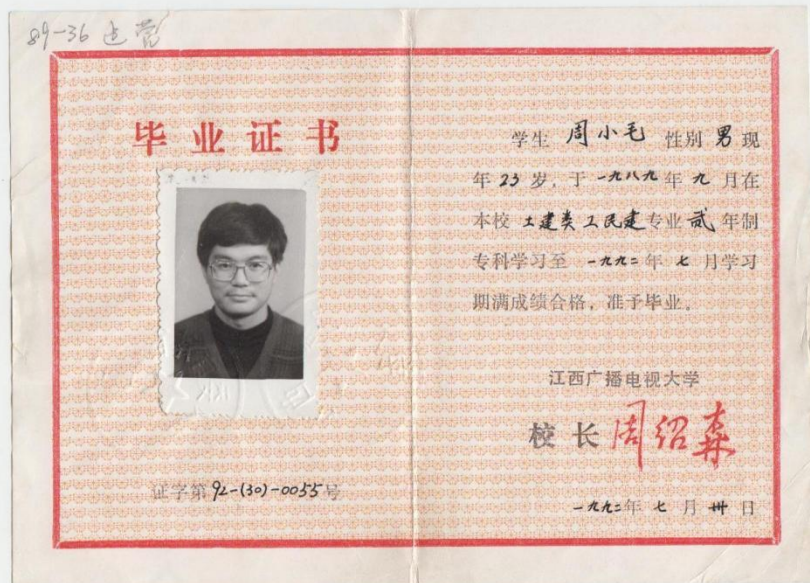 89-36
毕业证书
证字第92-(30)-0055号
学生 周小毛 性别 男 现
年 23 岁,于 一九八九 年 九 月在
本校 土建类工民建 专业 贰 年制
专科学习至 一九九二 年 七 月学习
期满成绩合格,准予毕业。
江西广播电视大学
校长 周绍森
一九九二年 七 月 卅 日